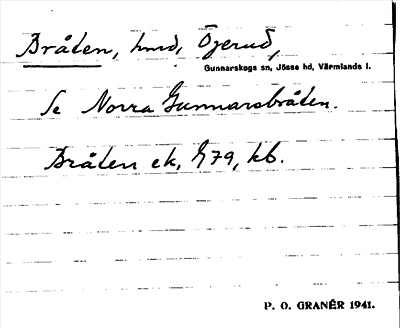 Bråten, hmd, Ögerud,
Gunnarskogs sn, Jösse hd, Värmlands l.
Se Norra Gunnarsbråten.
Bråten ek, 979, kb.
P. O. GRANÉR 1941.